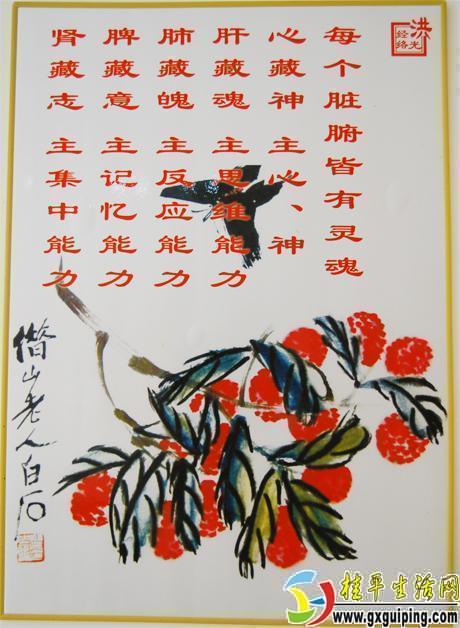 每个脏腑皆有灵魂
心藏神 主心、神
肝藏魂 主思维能力
肺藏魄 主反应能力
脾藏意 主记忆能力
肾藏志 主集中能力
洪光
经络
借山老人白石
桂平生活网
www.gxguiping.com